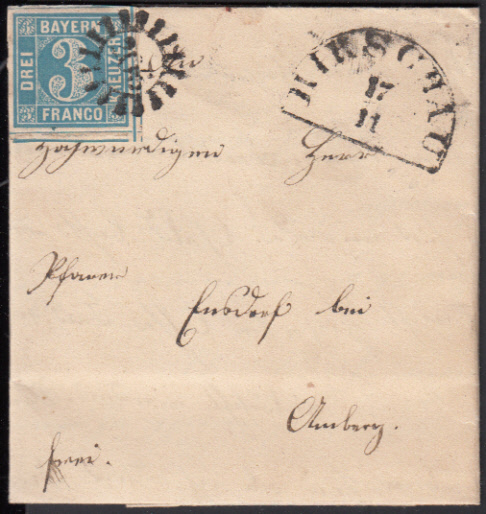 BAYERN
DREI 3 KREUZER
FRANCO
HIRSCHAU
17
11
Hochwürdigen Herr
Pfarrer
Ensdorf bei
Amberg.
frei.